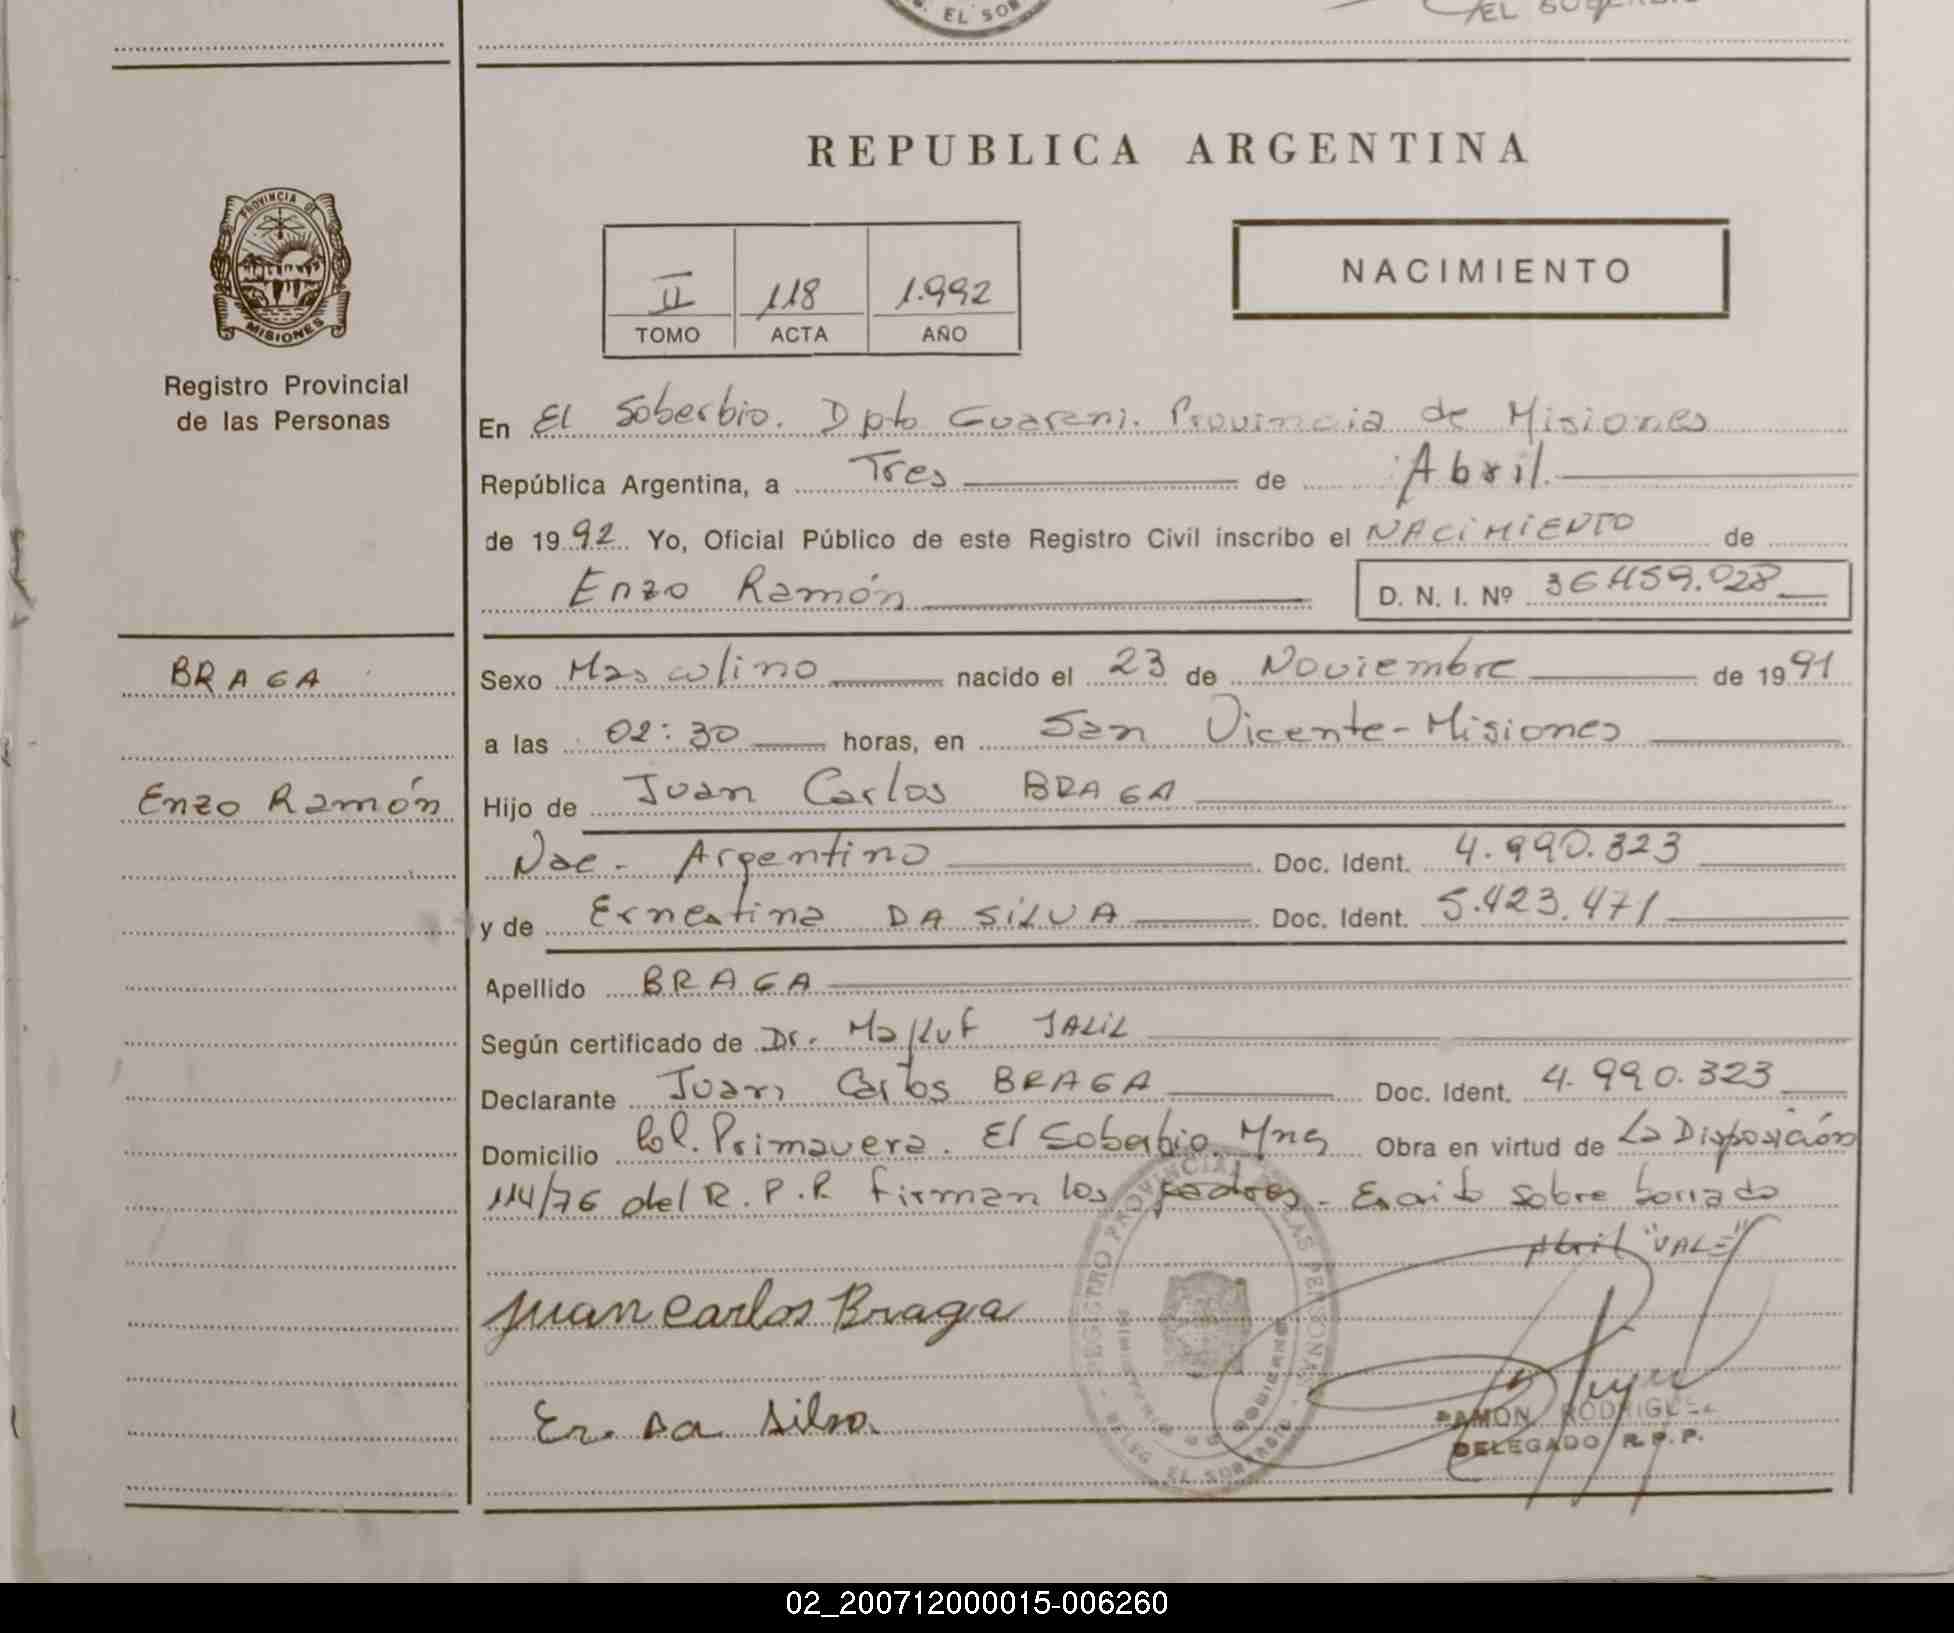 EL SOB
REPUBLICA ARGENTINA
PROVINCIA DE
MISIONES
Registro Provincial
de las Personas
II 118 1.992
TOMO ACTA AÑO
NACIMIENTO
En El Soberbio. Dpto Guarani. Provincia de Misiones
República Argentina, a Tres de Abril.
de 1992 Yo, Oficial Público de este Registro Civil inscribo el NACIMIENTO de
Enzo Ramón D. N. I. Nº 36459.028
BRAGA
Enzo Ramón
Sexo Masculino nacido el 23 de Noviembre de 1991
a las 02:30 horas, en San Vicente-Misiones
Hijo de Juan Carlos BRAGA
Nac. Argentino Doc. Ident. 4.990.323
y de Ernestina DA SILVA Doc. Ident. 5.423.471
Apellido BRAGA
Según certificado de Dr. Malluf JALIL
Declarante Juan Carlos BRAGA Doc. Ident. 4.990.323
Domicilio Col. Primavera. El Soberbio. Mnes Obra en virtud de La Disposición
114/76 del R.P.P. Firman los padres - Escrito sobre borrado
Abril "VALE"
Juan Carlos Braga
Er. Da Silva
REGISTRO PROVINCIAL DE LAS PERSONAS
DELEG. EL SOBERBIO
RAMON RODRIGUEZ
DELEGADO R.P.P.
02_200712000015-006260